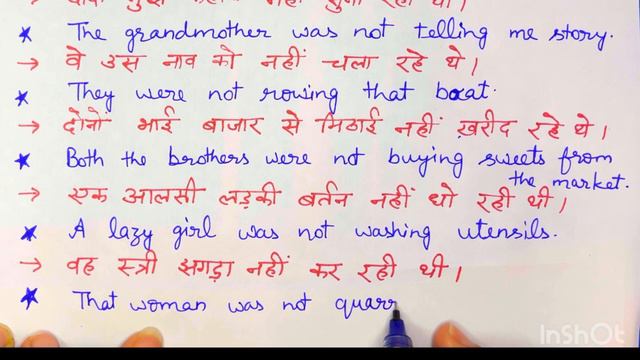 The grandmother was not telling me story.
→ वे उस नाव को नहीं चला रहे थे।
They were not rowing that boat.
→ दोनों भाई बाजार से मिठाई नहीं ख़रीद रहे थे।
Both the brothers were not buying sweets from
the market.
→ एक आलसी लड़की बर्तन नहीं धो रही थी।
A lazy girl was not washing utensils.
→ वह स्त्री झगड़ा नहीं कर रही थी।
That woman was not quarr
InShOt